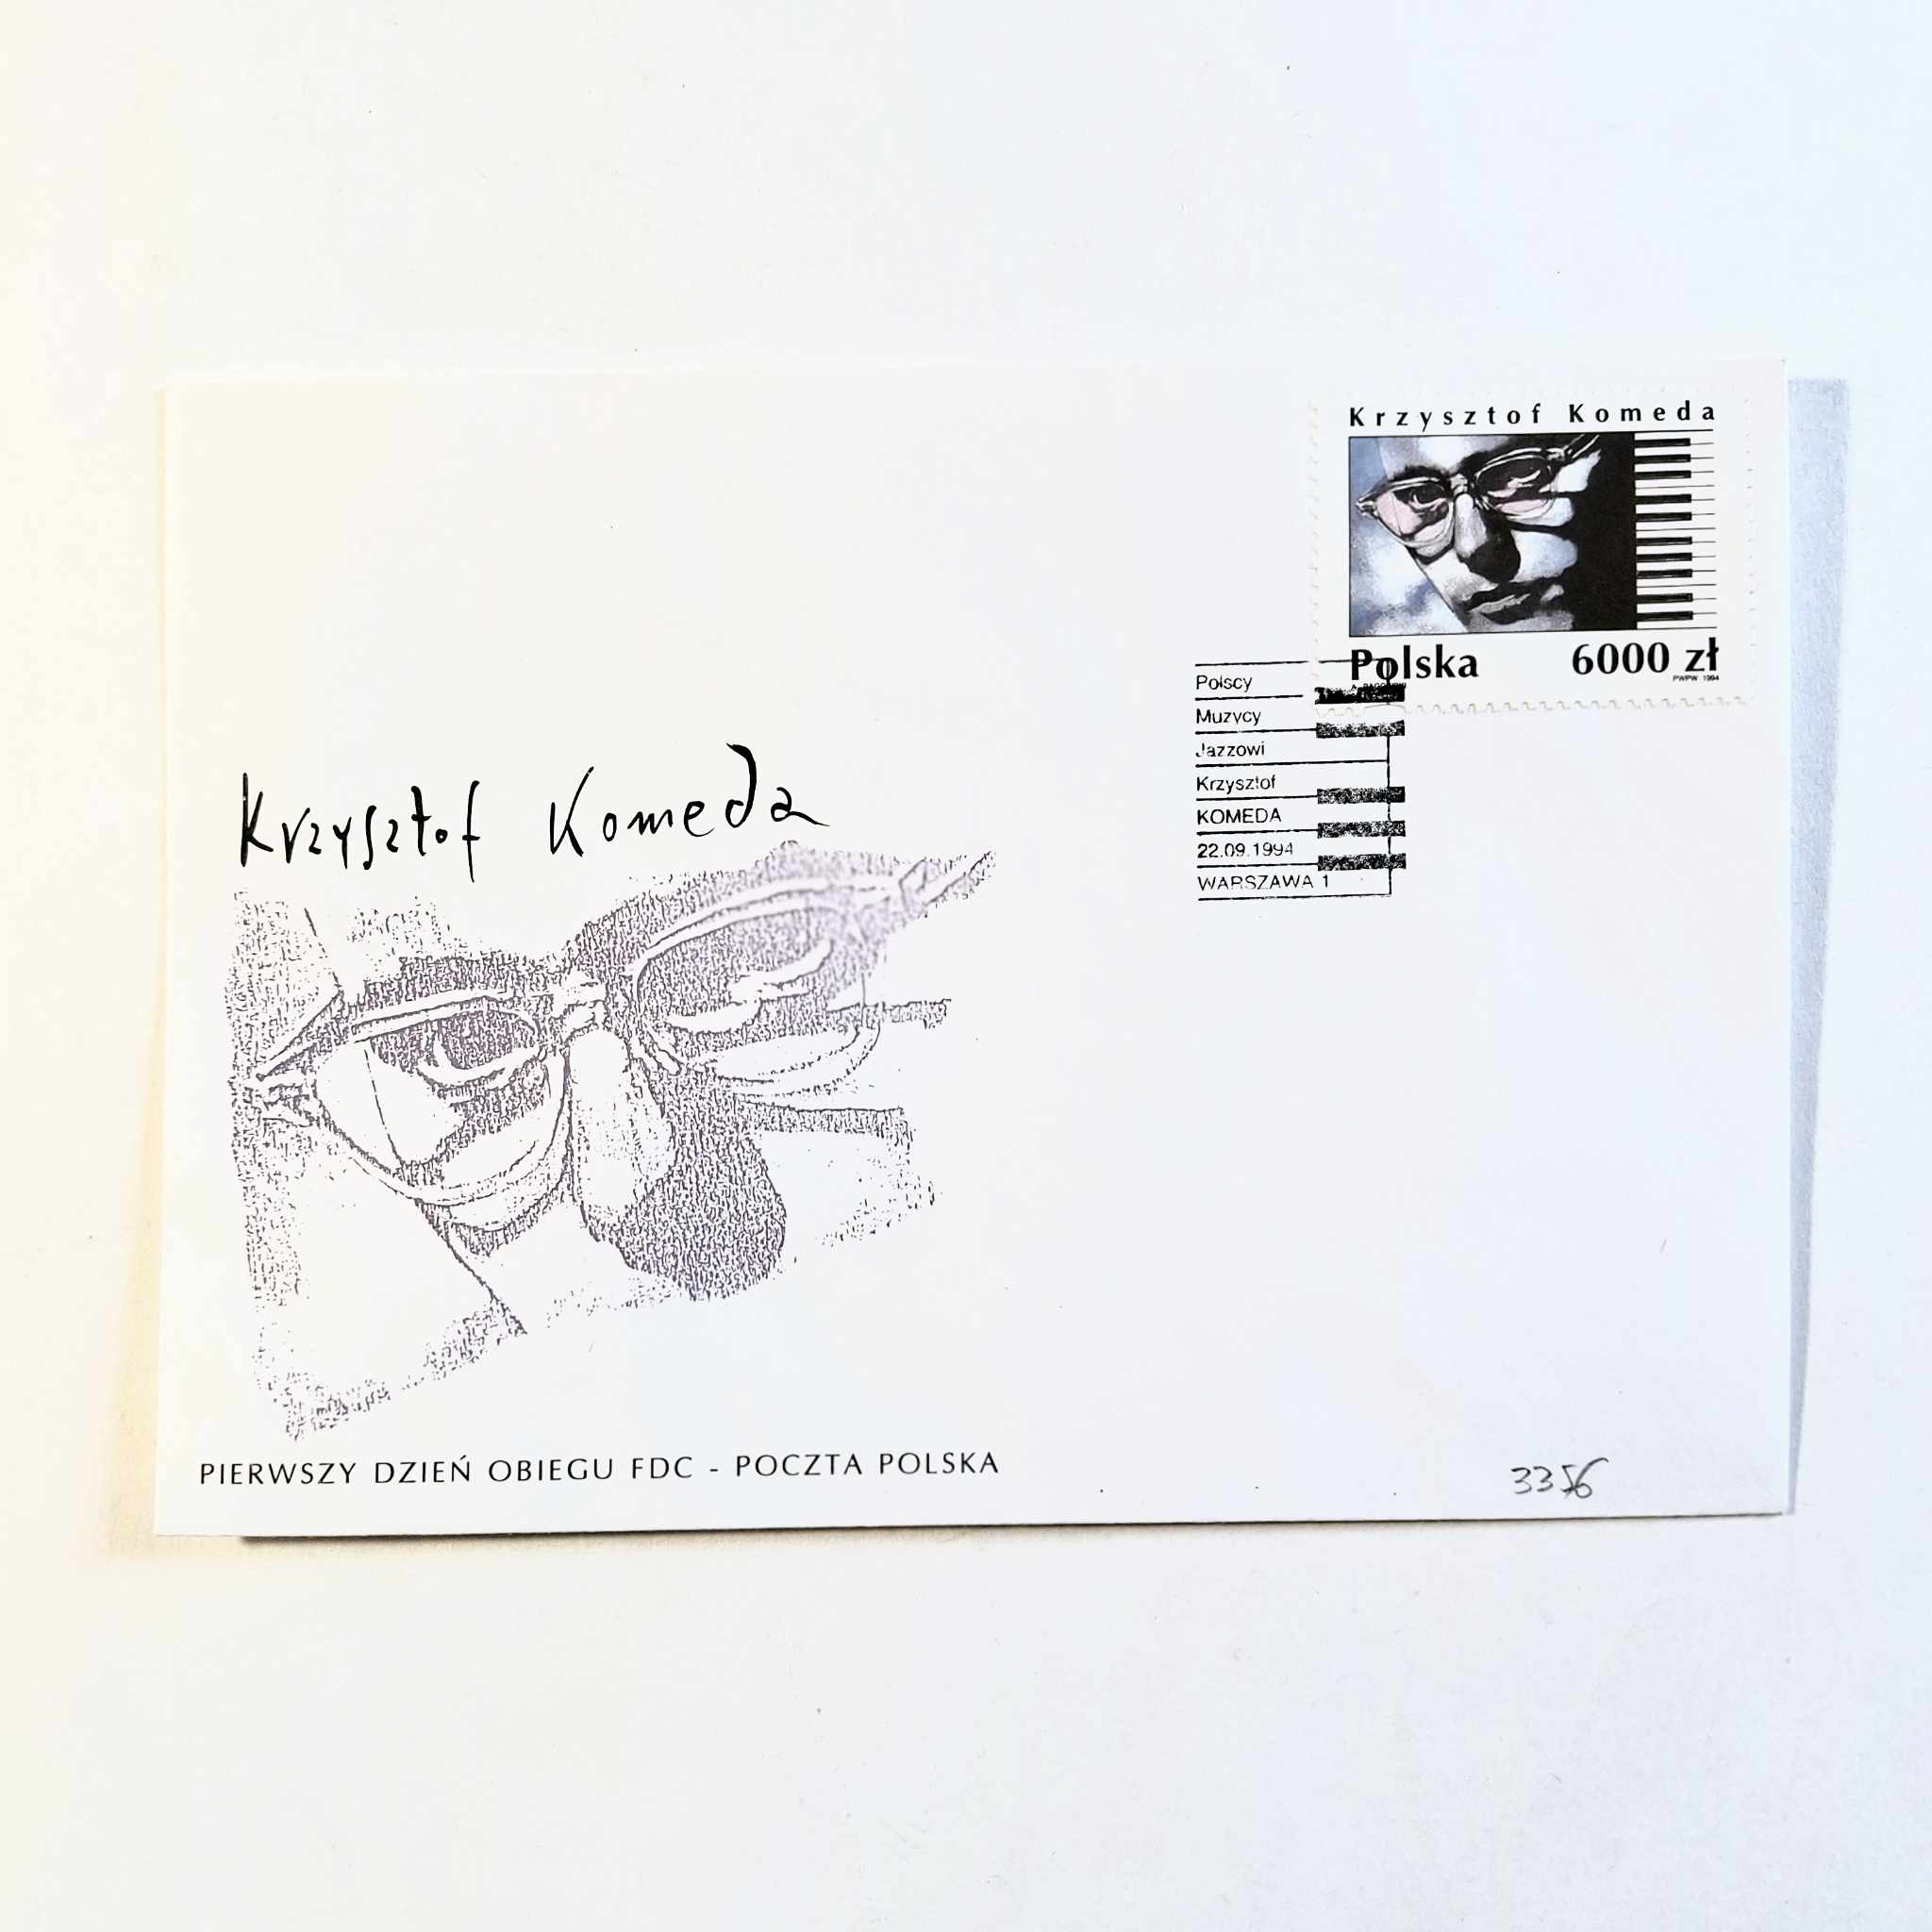 Krzysztof Komeda
Polska 6000 zł
PWPW 1994
Polscy
Muzycy
Jazzowi
Krzysztof
KOMEDA
22.09.1994
WARSZAWA 1
Krzysztof Komeda
PIERWSZY DZIEŃ OBIEGU FDC - POCZTA POLSKA
3356